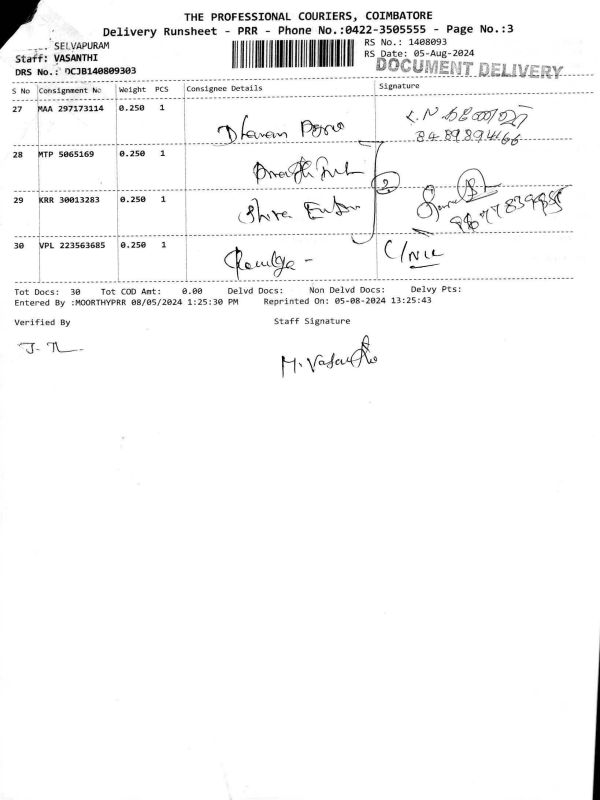 THE PROFESSIONAL COURIERS, COIMBATORE
Delivery Runsheet - PRR - Phone No.:0422-3505555 - Page No.:3
SELVAPURAM
Staff: VASANTHI
DRS No.: DCJB140809303
RS No.: 1408093
RS Date: 05-Aug-2024
DOCUMENT DELIVERY
S No Consignment No Weight PCS Consignee Details Signature
27 MAA 297173114 0.250 1
28 MTP 5065169 0.250 1
29 KRR 30013283 0.250 1 Shiva
30 VPL 223563685 0.250 1
2
Tot Docs: 30 Tot COD Amt: 0.00 Delvd Docs: Non Delvd Docs: Delvy Pts:
Entered By :MOORTHYPRR 08/05/2024 1:25:30 PM Reprinted On: 05-08-2024 13:25:43
Verified By Staff Signature
M. Vasantha